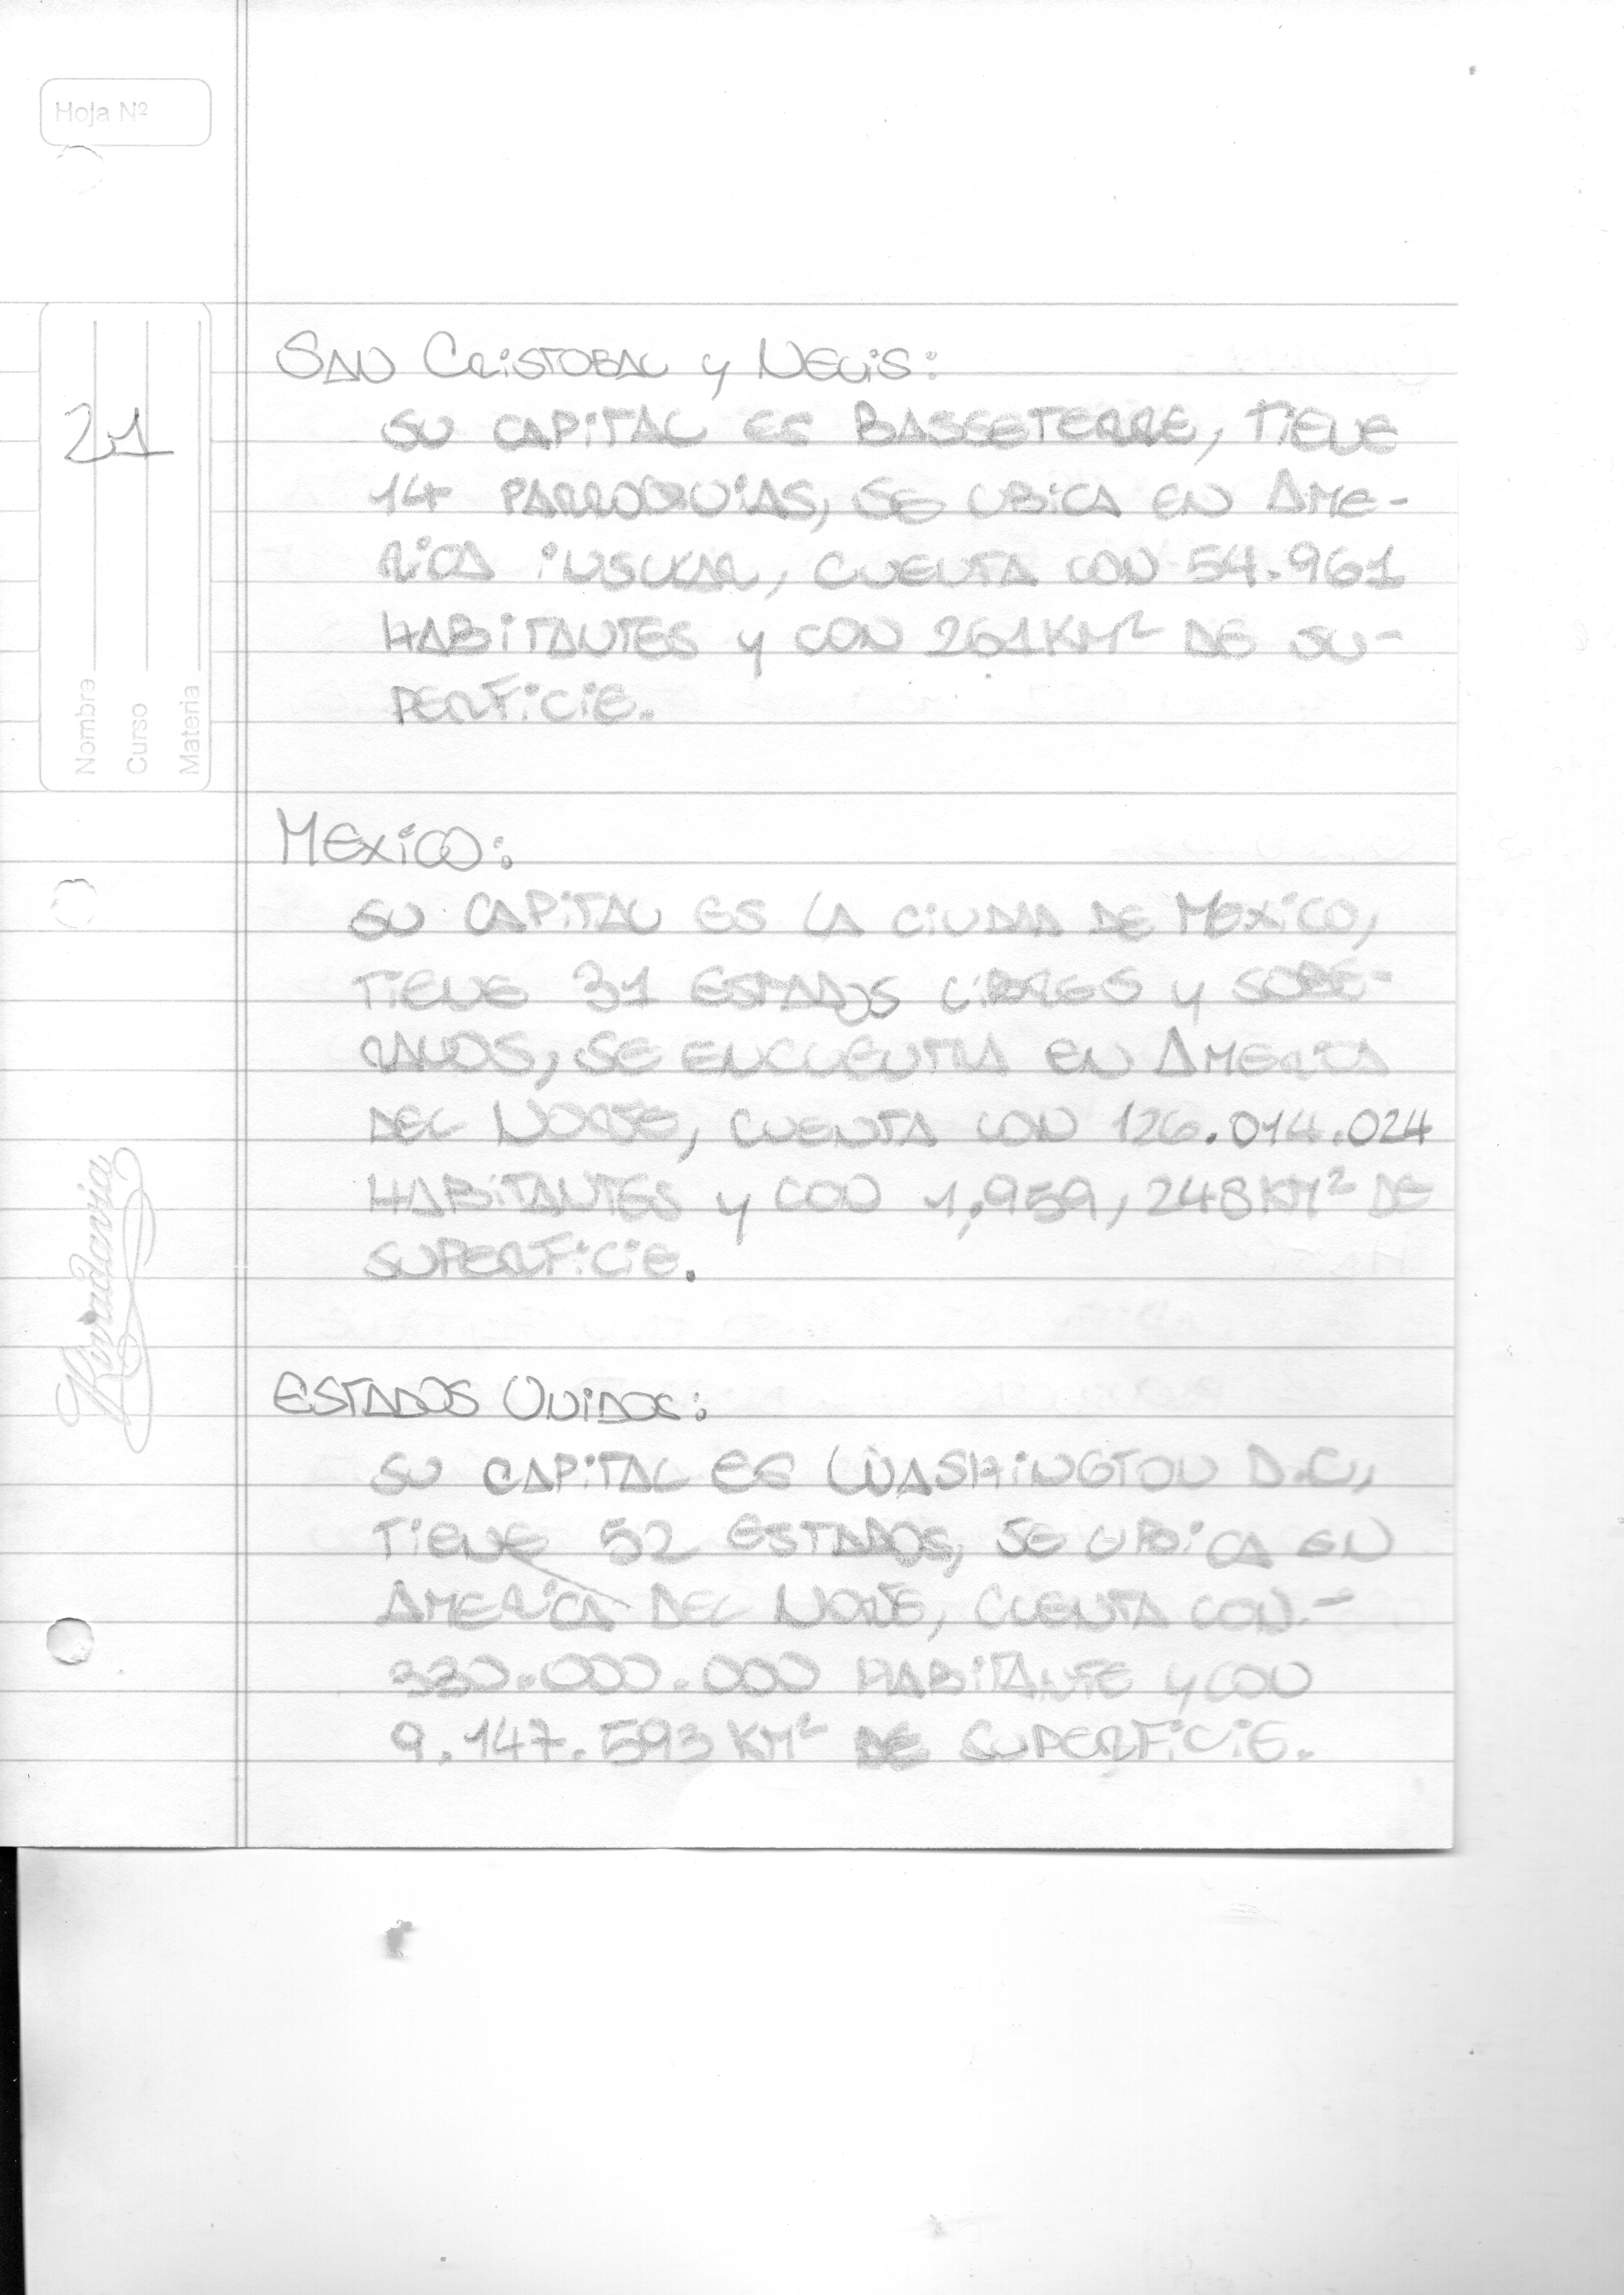 Hoja Nº
21
Nombre
Curso
Materia
Rivadavia
SAN CRISTOBAL y NEVIS:
SU CAPITAL ES BASSETERRE, TIENE
14 PARROQUIAS, SE UBICA EN AME-
RICA INSULAR, CUENTA CON 54.961
HABITANTES y CON 261KM² DE SU-
PERFICIE.
MEXICO:
SU CAPITAL ES LA CIUDAD DE MEXICO,
TIENE 31 ESTADOS LIBRES y SOBE-
RANOS, SE ENCUENTRA EN AMERICA
DEL NORTE, CUENTA CON 126.014.024
HABITANTES y CON 1,959,248KM² DE
SUPERFICIE.
ESTADOS UNIDOS:
SU CAPITAL ES WASHINGTON D.C,
TIENE 52 ESTADOS, SE UBICA EN
AMERICA DEL NORTE, CUENTA CON.-
330.000.000 HABITANTE y CON
9.147.593 KM² DE SUPERFICIE.